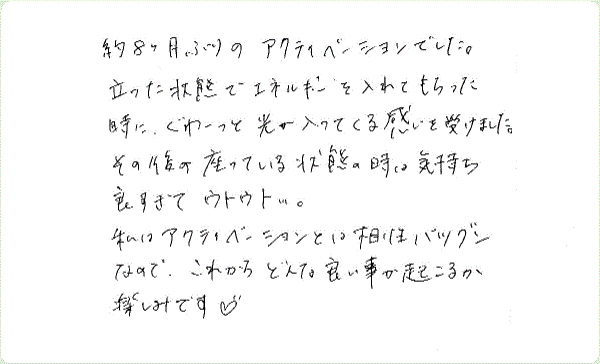 約8ヶ月ぶりの アクティベーションでした。
立った状態で エネルギーを 入れてもらった
時に、ぐわーっと 光が入ってくる感じを受けました。
その後の座っている状態の時は気持ち
良すぎて ウトウト…。
私はアクティベーションとは相性バツグン
なので、これから どんな良い事が起こるか
楽しみです♡